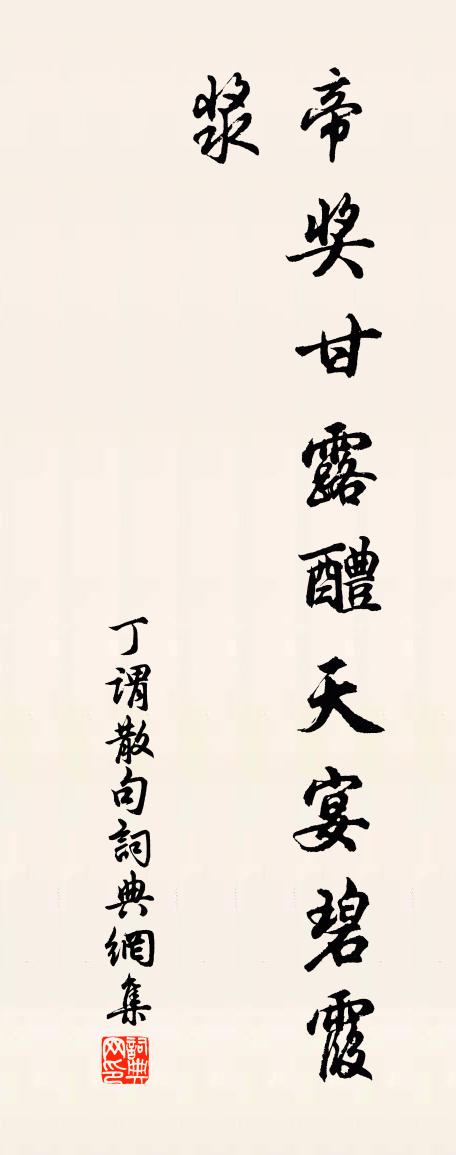 帝奖甘露醴天宴碧霞
浆
丁谓散句詞典網集
詞典网印